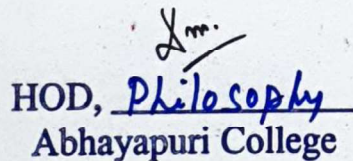 HOD, Philosophy
Abhayapuri College